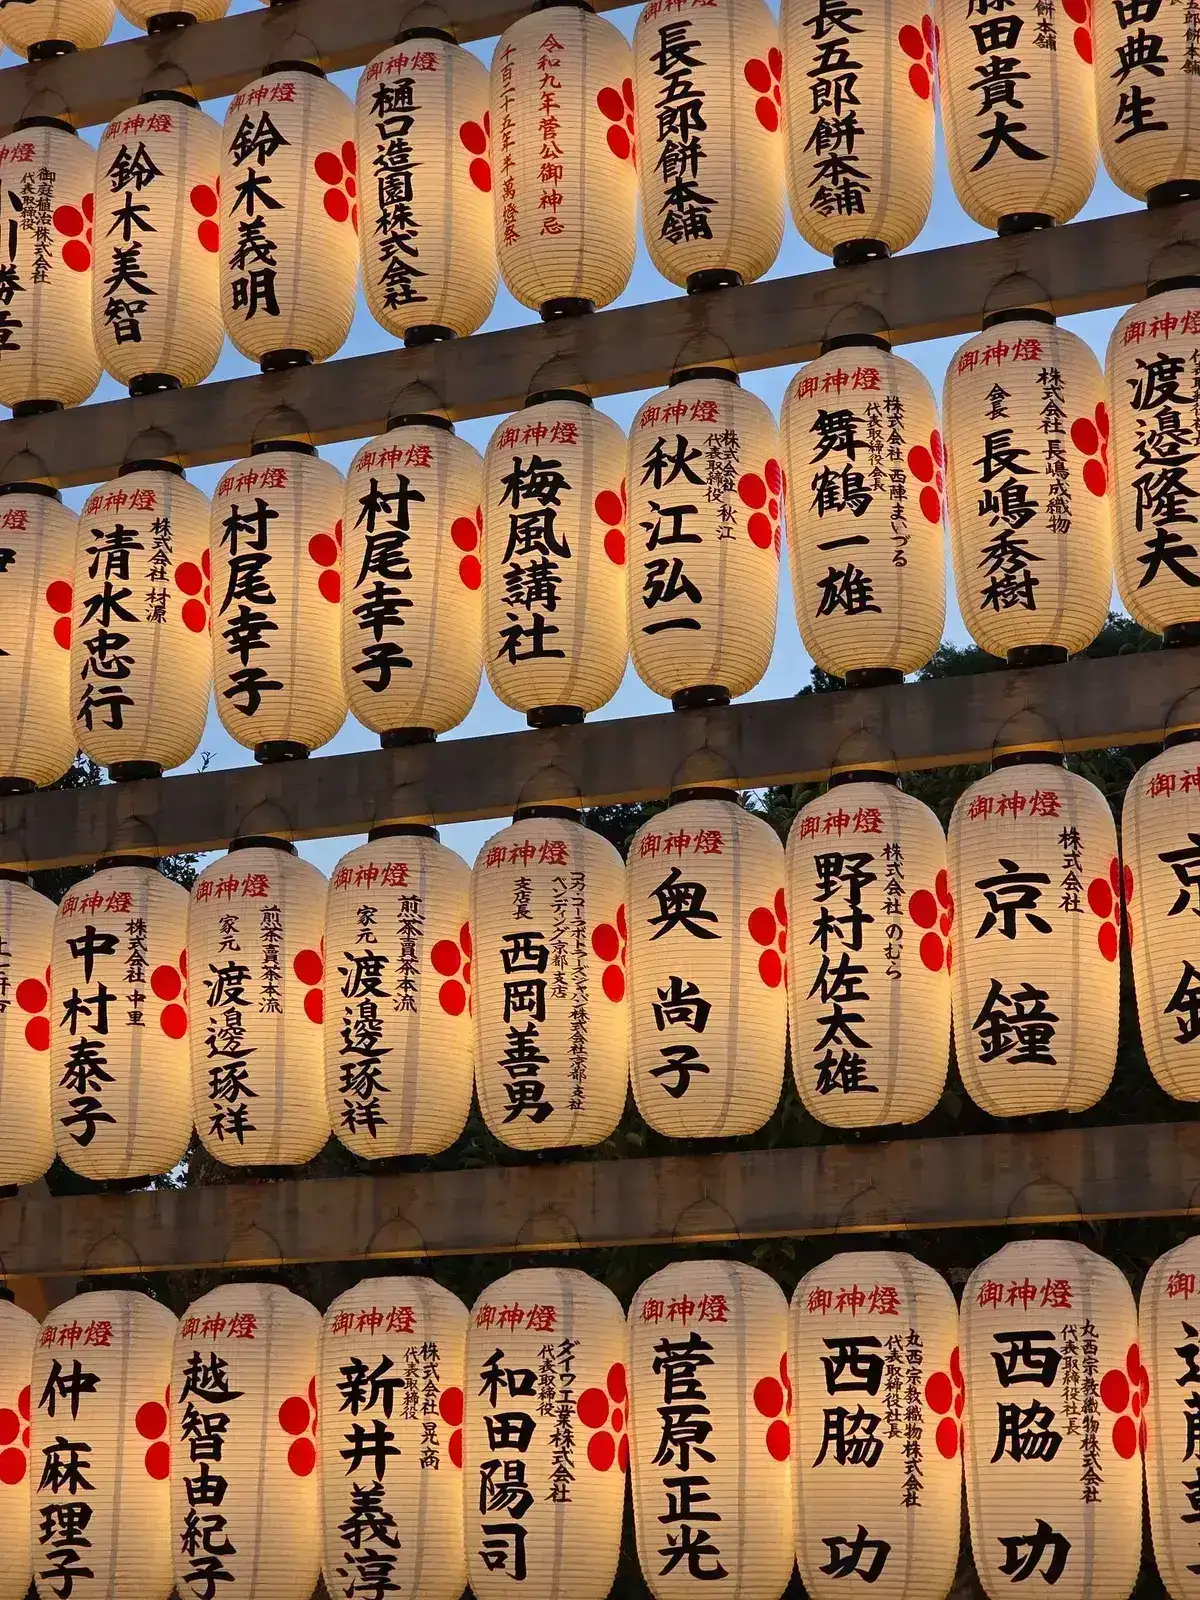 御神燈
御庭植治株式会社
代表取締役
御神燈
鈴木美智
御神燈
鈴木義明
御神燈
樋口造園株式会社
令和九年菅公御神忌
千百二十五年半萬燈祭
御神燈
長五郎餅本舗
長五郎餅本舗
藤田貴大
典生
御神燈
株式会社 材源
清水忠行
御神燈
村尾幸子
御神燈
村尾幸子
御神燈
梅風講社
御神燈
株式会社 秋江
代表取締役
秋江弘一
御神燈
株式会社 西陣まいづる
代表取締役会長
舞鶴一雄
御神燈
株式会社 長嶋成織物
会長 長嶋秀樹
御神燈
渡邉隆夫
御神燈
株式会社 中里
中村泰子
御神燈
煎茶賣茶本流
家元 渡邊琢祥
御神燈
煎茶賣茶本流
家元 渡邊琢祥
御神燈
コカ・コーラボトラーズジャパン株式会社京都支社
ベンディング京都支店
支店長 西岡善男
御神燈
奥 尚子
御神燈
株式会社 のむら
野村佐太雄
御神燈
株式会社
京 鐘
御神燈
京
御神燈
仲 麻理子
御神燈
越智由紀子
御神燈
株式会社 晃商
代表取締役
新井義淳
御神燈
ダイワ工業株式会社
代表取締役
和田陽司
御神燈
菅原正光
御神燈
丸西宗教織物株式会社
代表取締役社長
西脇 功
御神燈
丸西宗教織物株式会社
代表取締役社長
西脇 功
御神燈